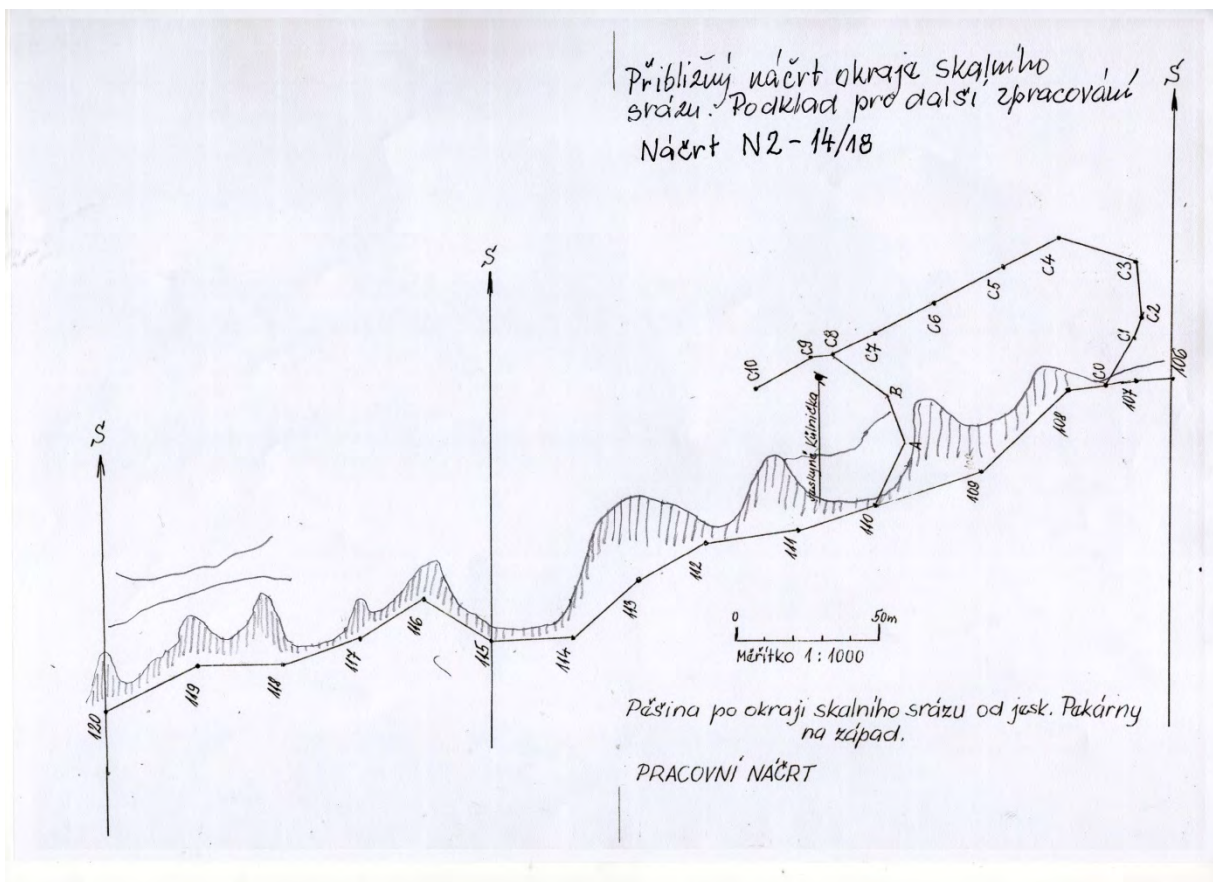 Přibližný náčrt okraje skalního
srázu. Podklad pro další zpracování
Náčrt N2-14/18
Š
Š
Š
C4
C3
C5
C2
C6
C1
C7
C8
C9
C10
C0
106
107
108
B
A
jeskyně Kůlnička
109
110
111
112
113
114
115
116
117
118
119
120
0 50m
Měřítko 1:1000
Pěšina po okraji skalního srázu od jesk. Pekárny
na západ.
PRACOVNÍ NÁČRT